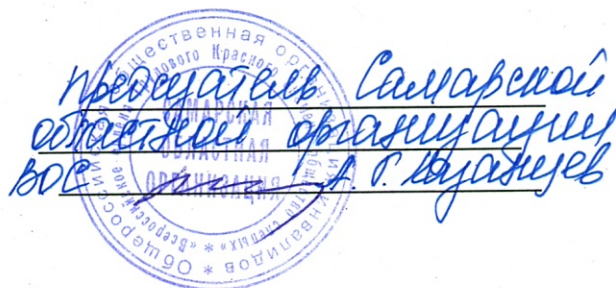 Председатель Самарской
областной организации
ВОС А. Г. Казанцев
Общероссийская общественная организация инвалидов
«Всероссийское Ордена Трудового Красного Знамени общество слепых»
САМАРСКАЯ
ОБЛАСТНАЯ
ОРГАНИЗАЦИЯ